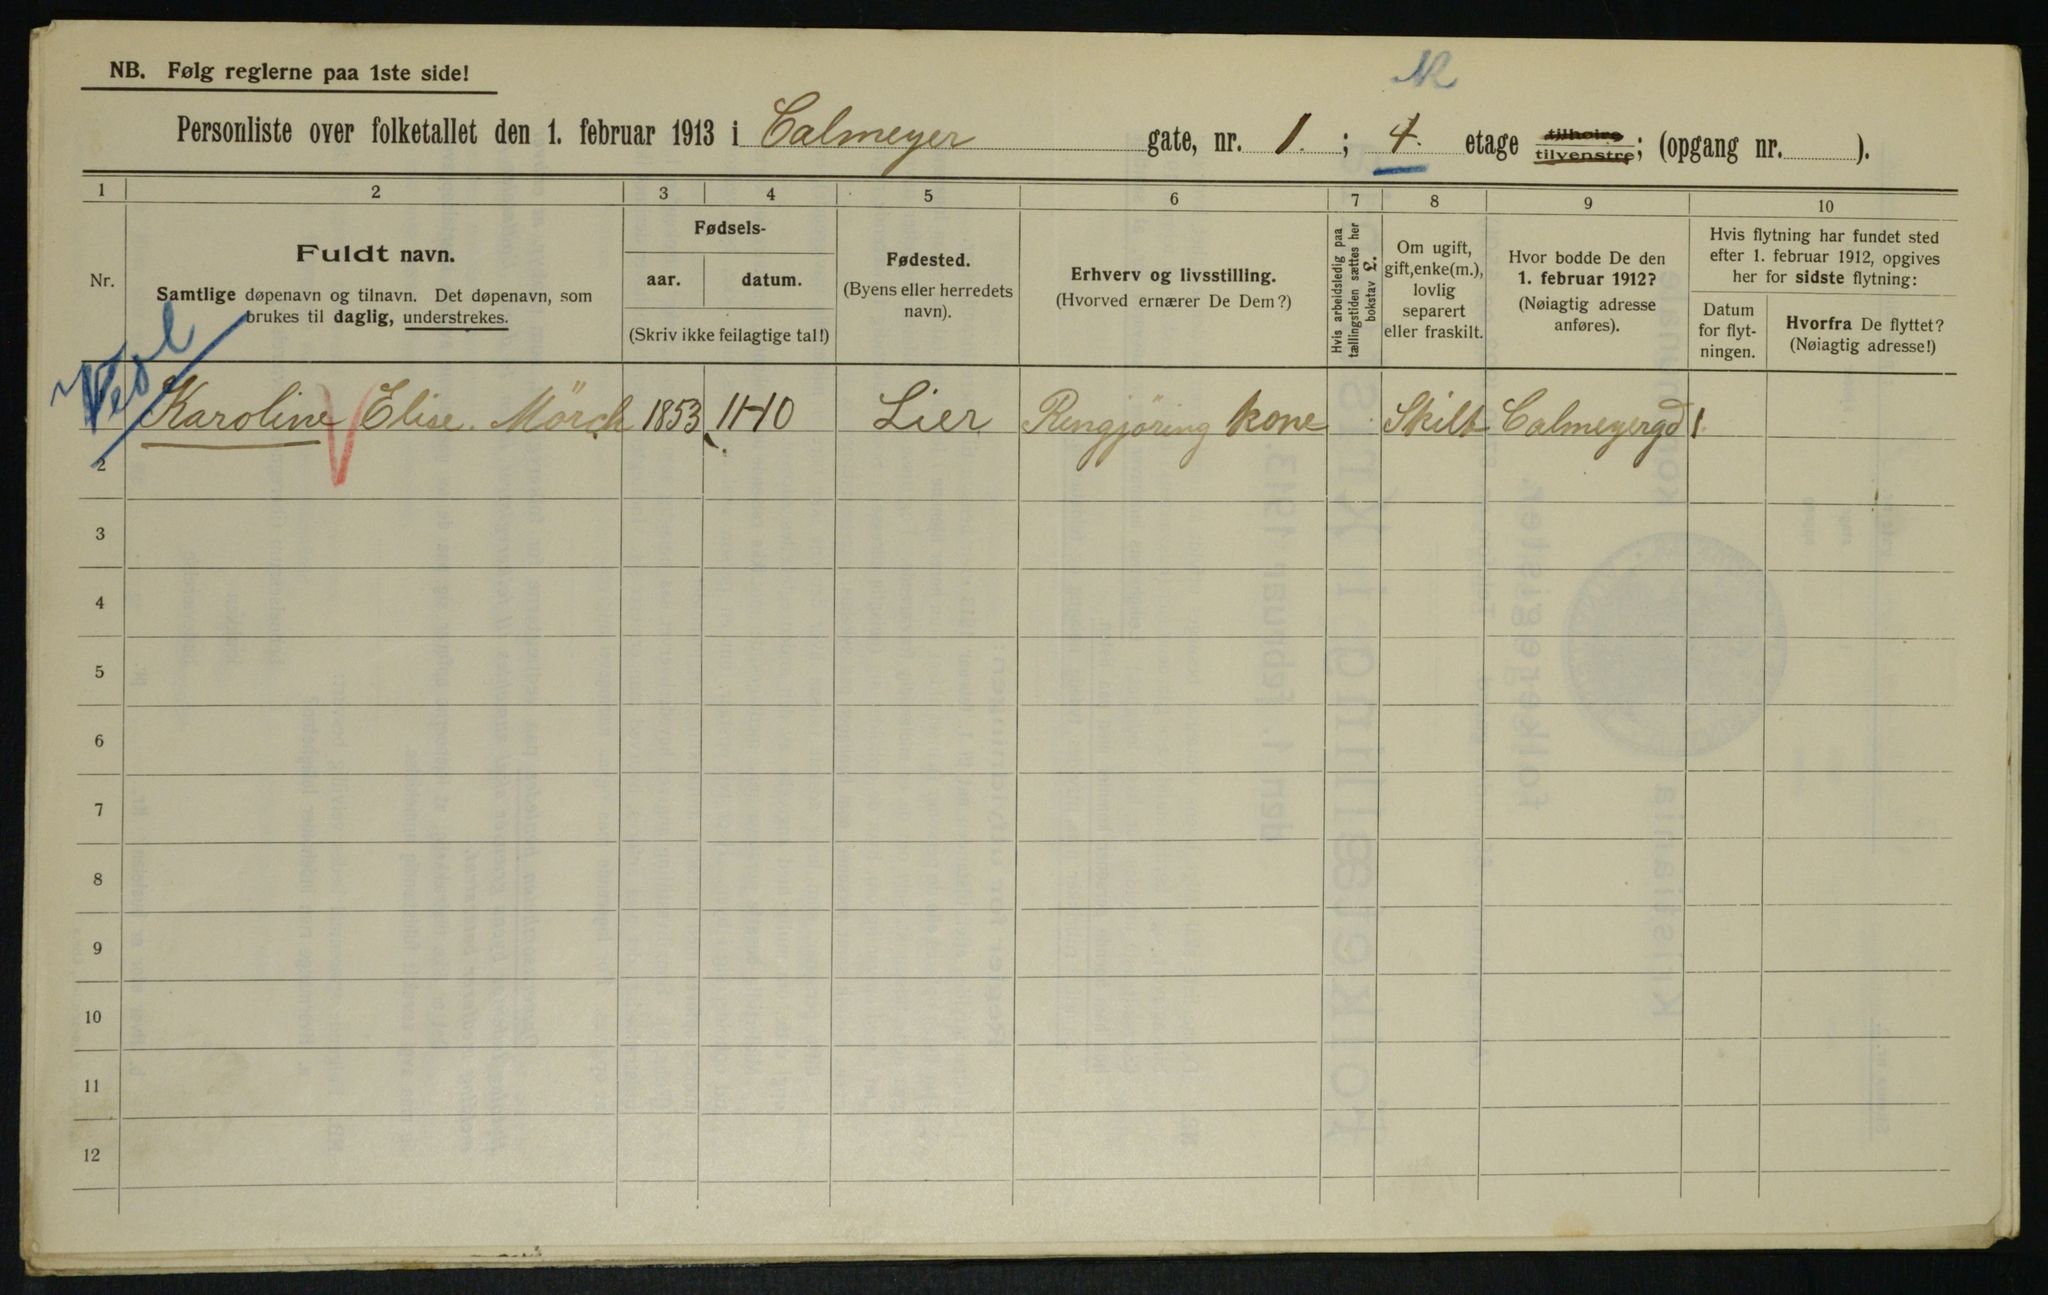 NB. Følg reglerne paa 1ste side!
Personliste over folketallet den 1. februar 1913 i Calmeyer gate, nr. 1. ; 4. etage tilhøire tilvenstre; (opgang nr. ).
1 2 3 4 5 6 7 8 9 10
Nr.
Fuldt navn.
Samtlige døpenavn og tilnavn. Det døpenavn, som
brukes til daglig, understrekes.
Fødsels-
aar. datum.
(Skriv ikke feilagtige tal!)
Fødested.
(Byens eller herredets
navn).
Erhverv og livsstilling.
(Hvorved ernærer De Dem?)
Hvis arbeidsledig paa
tællingstiden sættes her
bokstav L.
Om ugift,
gift, enke(m.),
lovlig
separert
eller fraskilt.
Hvor bodde De den
1. februar 1912?
(Nøiagtig adresse
anføres).
Hvis flytning har fundet sted
efter 1. februar 1912, opgives
her for sidste flytning:
Datum
for flyt-
ningen.
Hvorfra De flyttet?
(Nøiagtig adresse!)
Karoline Elise. Mörch 1853 11-10 Lier Rengjöring kone Skilt Calmeyergd 1
2
3
4
5
6
7
8
9
10
11
12